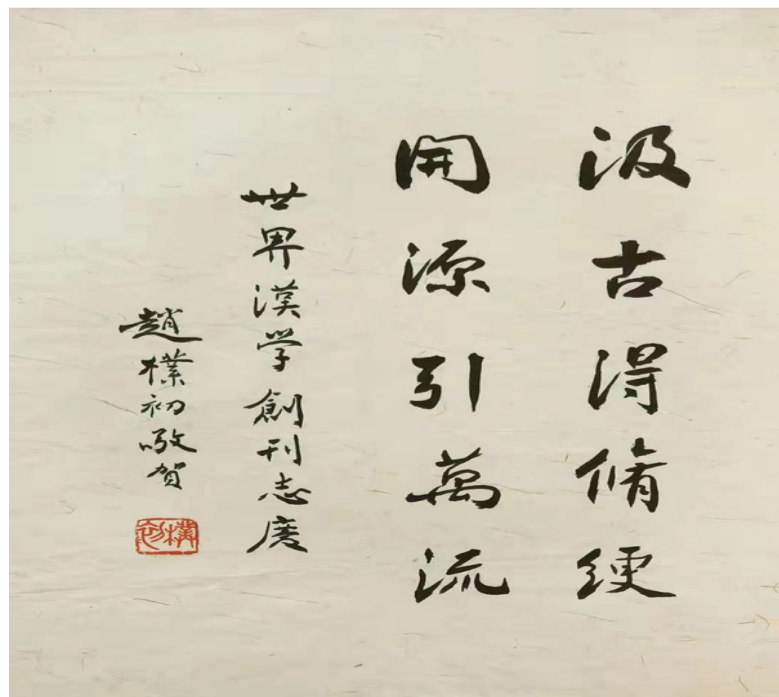 汲古得脩綆
開源引萬流
世界漢学創刊志慶
趙樸初敬賀
樸初